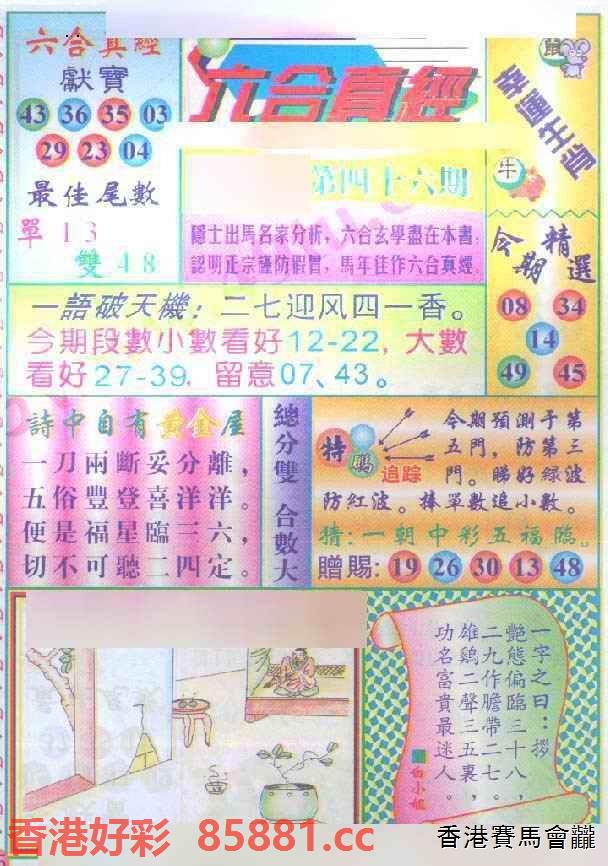 六合真經
獻寶
43 36 35 03
29 23 04
最佳尾數
單 1 3
雙 4 8
六合真經
第四十六期
隱士出馬名家分析，六合玄學盡在本書；
認明正宗謹防假冒，馬年佳作六合真經。
鼠
幸運生肖
牛
今期精選
08 34
14
49 45
一語破天機：二七迎风四一香。
今期段數小數看好12-22，大數
看好27-39，留意07、43。
詩中自有黄金屋
一刀兩斷妥分離，
五俗豐登喜洋洋。
便是福星臨三六，
切不可聽二四定。
總分雙 合數大
特碼
追踪
今期預測于第
五門，防第三
門。睇好緑波
防紅波。捧單數追小數。
猜：一朝中彩五福臨。
贈賜：19 26 30 13 48
一字之曰：拶
艷態偏臨三十八，
二九作膽帶二七。
雄鷄二聲三五裏，
功名富貴最迷人。
白小姐
香港好彩 85881.cc
香港賽馬會